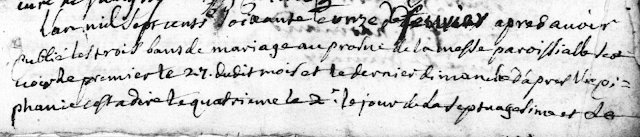 Lan mil sept cents soixante le onze de fevrier apres avoir
publié les trois bans de mariage au prosne de la messe paroissialle sca
voir le premier le 27 dudit mois et le dernier dimanche dapres l'epi
phanie cest a dire le quatrieme le 2 le jour de la septuagesime et le